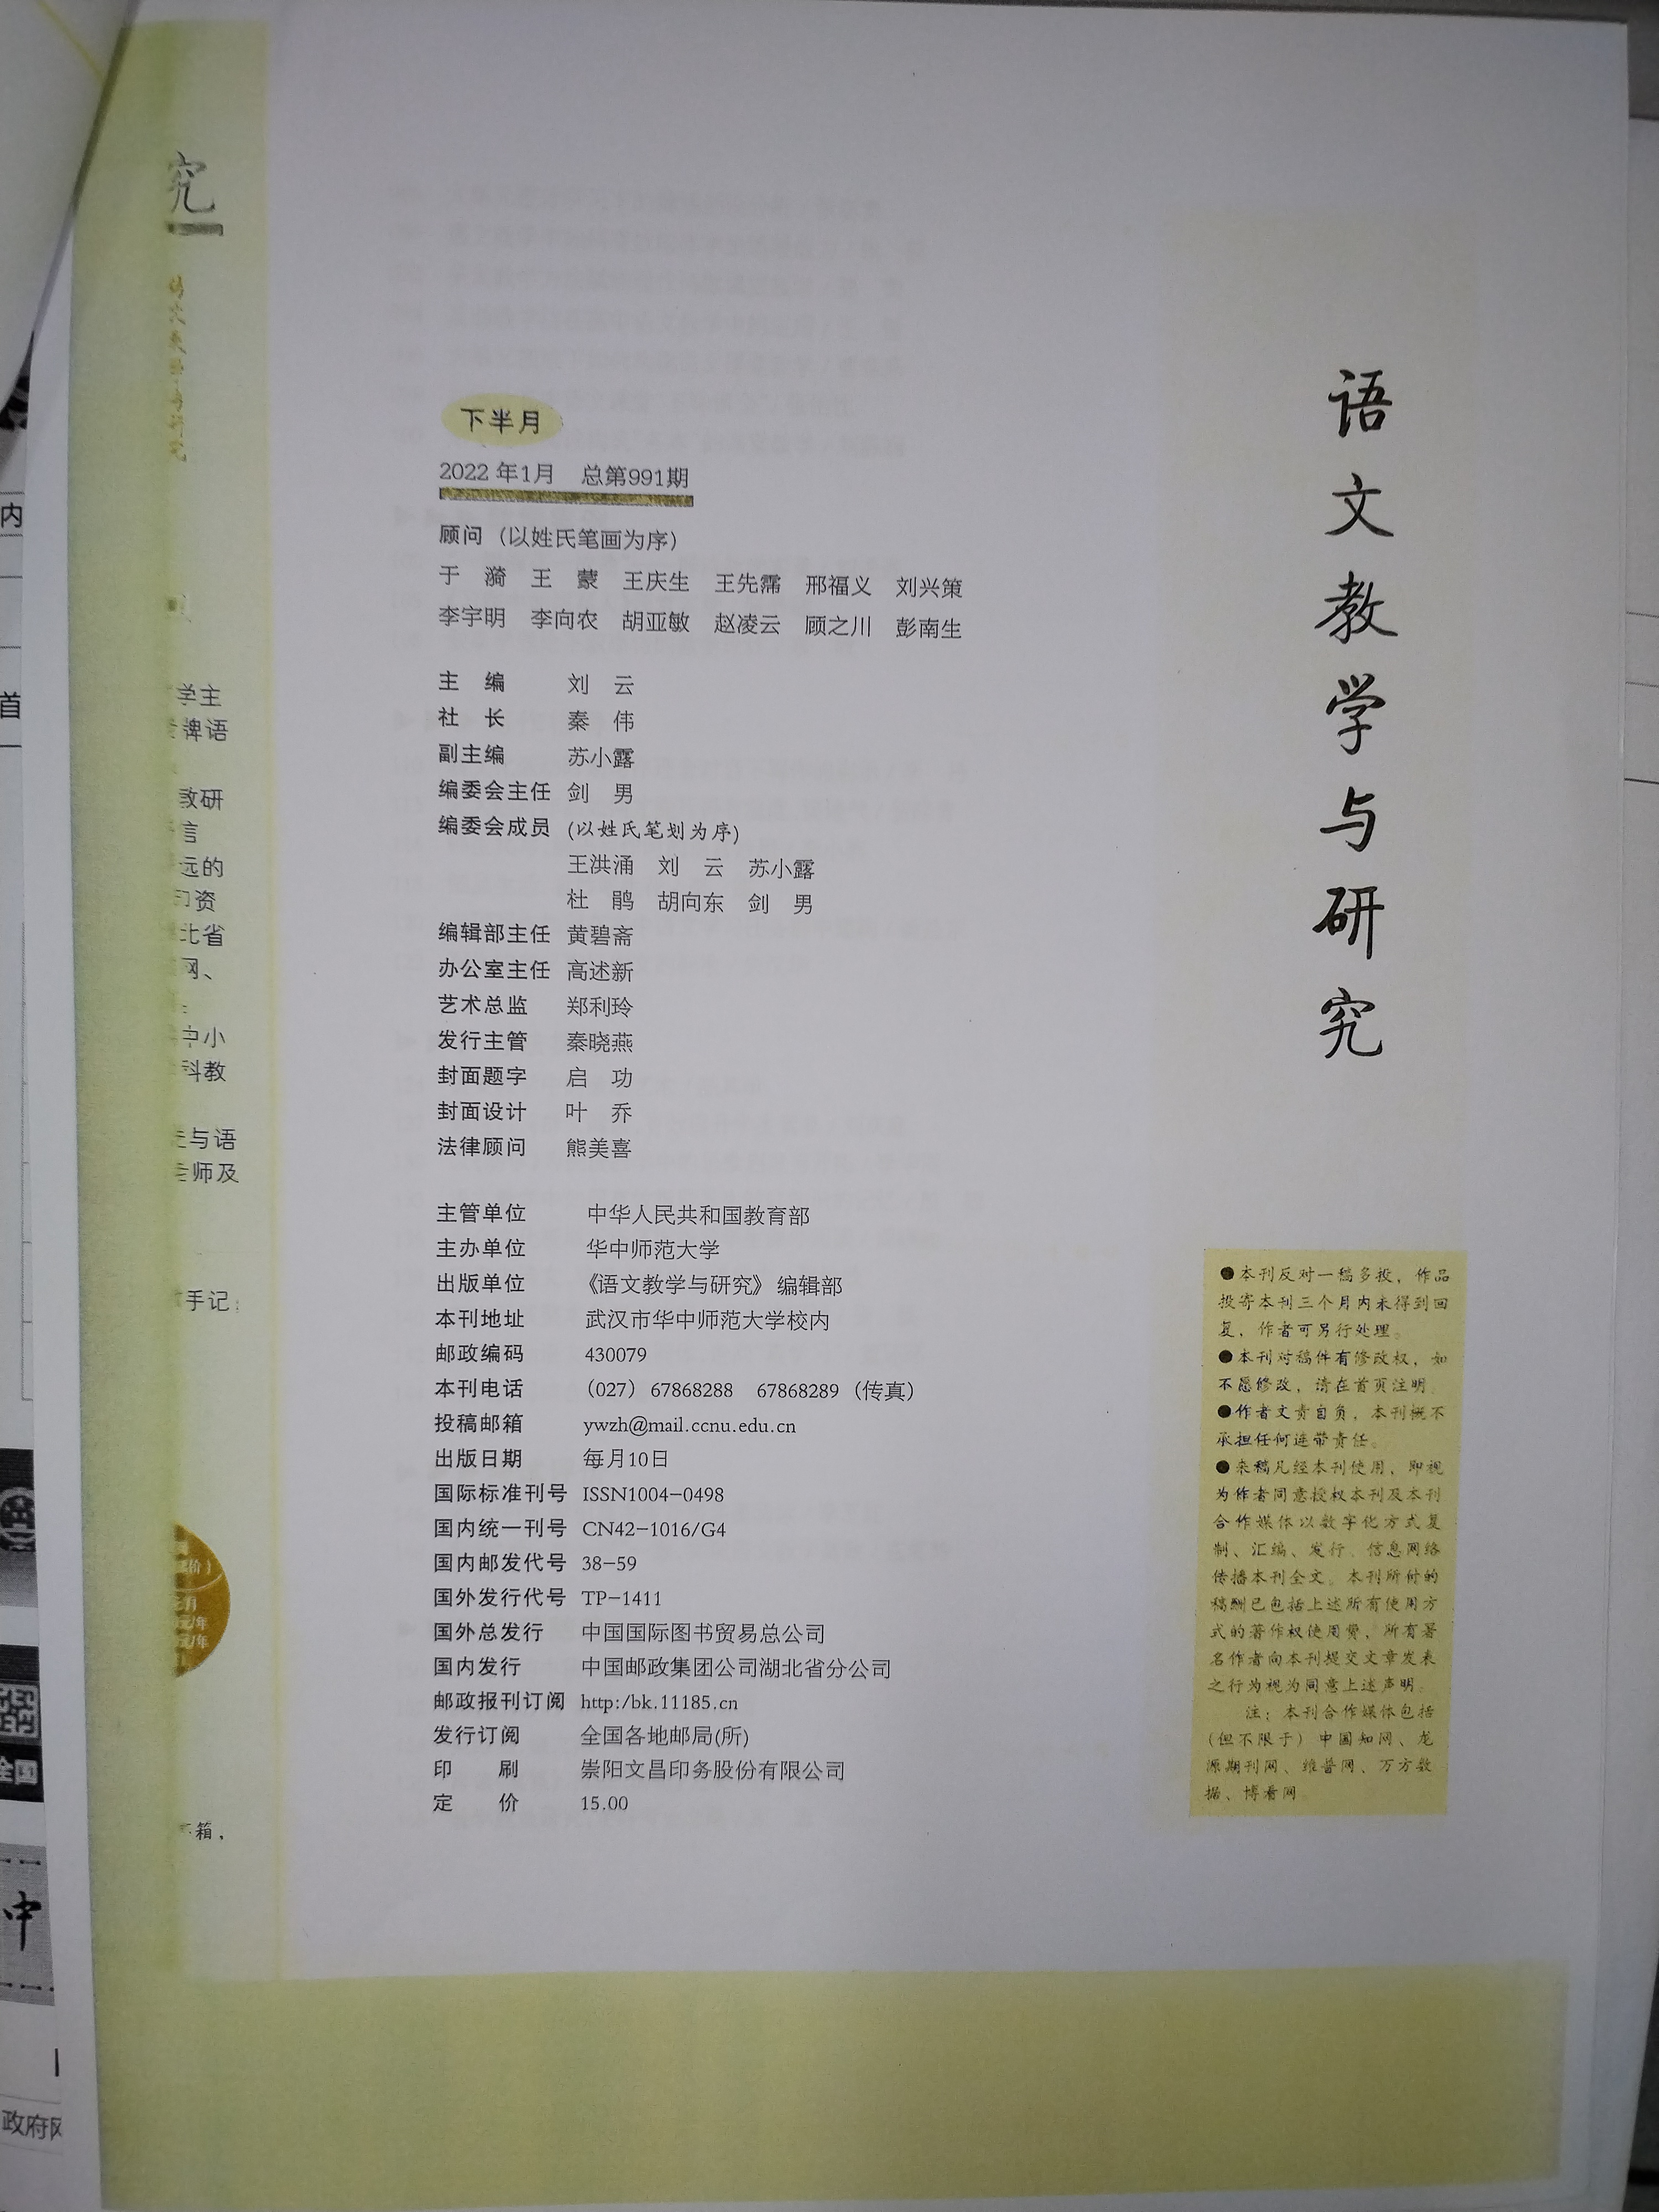 下半月
2022 年1月 总第991期
顾问（以姓氏笔画为序）
于 漪 王 蒙 王庆生 王先霈 邢福义 刘兴策
李宇明 李向农 胡亚敏 赵凌云 顾之川 彭南生
主 编 刘 云
社 长 秦 伟
副主编 苏小露
编委会主任 剑 男
编委会成员 (以姓氏笔划为序)
王洪涌 刘 云 苏小露
杜 鹃 胡向东 剑 男
编辑部主任 黄碧斋
办公室主任 高述新
艺术总监 郑利玲
发行主管 秦晓燕
封面题字 启 功
封面设计 叶 乔
法律顾问 熊美喜
主管单位 中华人民共和国教育部
主办单位 华中师范大学
出版单位 《语文教学与研究》编辑部
本刊地址 武汉市华中师范大学校内
邮政编码 430079
本刊电话 （027）67868288 67868289（传真）
投稿邮箱 ywzh@mail.ccnu.edu.cn
出版日期 每月10日
国际标准刊号 ISSN1004-0498
国内统一刊号 CN42-1016/G4
国内邮发代号 38-59
国外发行代号 TP-1411
国外总发行 中国国际图书贸易总公司
国内发行 中国邮政集团公司湖北省分公司
邮政报刊订阅 http:/bk.11185.cn
发行订阅 全国各地邮局(所)
印 刷 崇阳文昌印务股份有限公司
定 价 15.00
语文教学与研究
●本刊反对一稿多投，作品
投寄本刊三个月内未得到回
复，作者可另行处理。
●本刊对稿件有修改权，如
不愿修改，请在首页注明。
●作者文责自负，本刊概不
承担任何连带责任。
●来稿凡经本刊使用，即视
为作者同意授权本刊及本刊
合作媒体以数字化方式复
制、汇编、发行、信息网络
传播本刊全文。本刊所付的
稿酬已包括上述所有使用方
式的著作权使用费，所有署
名作者向本刊提交文章发表
之行为视为同意上述声明。
注：本刊合作媒体包括
(但不限于) 中国知网、龙
源期刊网、维普网、万方数
据、博看网。
究
语文教学与研究
学主
牌语
教研
言
远的
资
北省
网、
中小
科教
与语
师及
手记
箱，
内
首
全国
中
政府